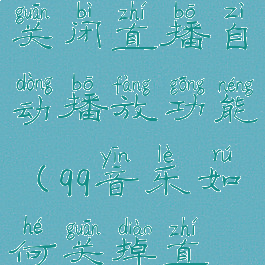 guān bì zhí bō zì
关闭直播自
dòng bō fàng gōng néng
动播放功能
yīn lè rú
(qq音乐如
hé guān diào zhí
何关掉直